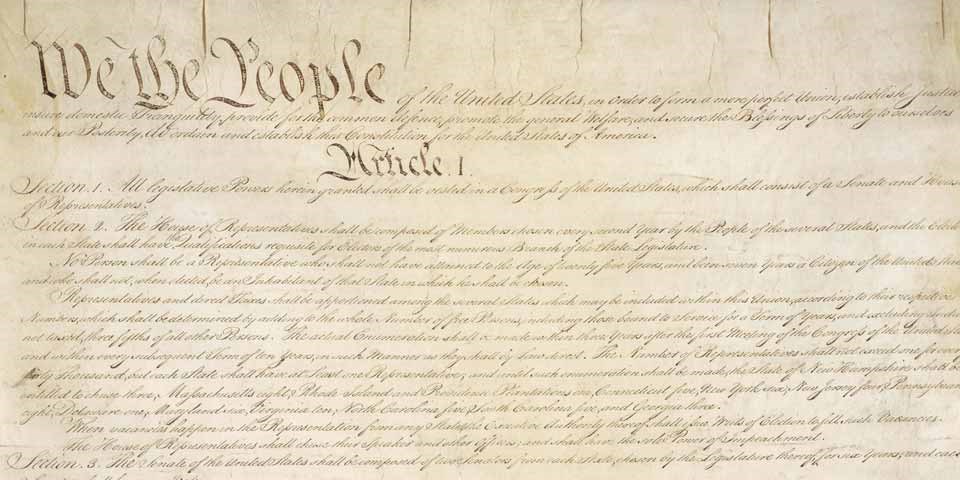 We the People of the United States, in Order to form a more perfect Union, establish Justice
insure domestic Tranquility, provide for the common defence, promote the general Welfare, and secure the Blessings of Liberty to ourselves
and our Posterity, do ordain and establish this Constitution for the United States of America.
Article. I.
Section. 1. All legislative Powers herein granted shall be vested in a Congress of the United States, which shall consist of a Senate and House
of Representatives.
Section. 2. The House of Representatives shall be composed of Members chosen every second Year by the People of the several States, and the
in each State shall have the Qualifications requisite for Electors of the most numerous Branch of the State Legislature.
No Person shall be a Representative who shall not have attained to the Age of twenty five Years, and been seven Years a Citizen of the United
and who shall not, when elected, be an Inhabitant of that State in which he shall be chosen.
Representatives and direct Taxes shall be apportioned among the several States which may be included within this Union, according to their respective
Numbers, which shall be determined by adding to the whole Number of free Persons, including those bound to Service for a Term of Years, and excluding
not taxed, three fifths of all other Persons. The actual Enumeration shall be made within three Years after the first Meeting of the Congress of the United
and within every subsequent Term of ten Years, in such Manner as they shall by Law direct. The Number of Representatives shall not exceed one for every
thirty Thousand, but each State shall have at Least one Representative; and until such enumeration shall be made, the State of New Hampshire shall be
entitled to chuse three, Massachusetts eight, Rhode Island and Providence Plantations one, Connecticut five, New York six, New Jersey four,
eight, Delaware one, Maryland six, Virginia ten, North Carolina five, South Carolina five, and Georgia three.
When vacancies happen in the Representation from any State, the Executive Authority thereof shall issue Writs of Election to fill such Vacancies.
The House of Representatives shall chuse their Speaker and other Officers; and shall have the sole Power of Impeachment.
Section. 3. The Senate of the United States shall be composed of two Senators from each State, chosen by the Legislature thereof, for six Years; and